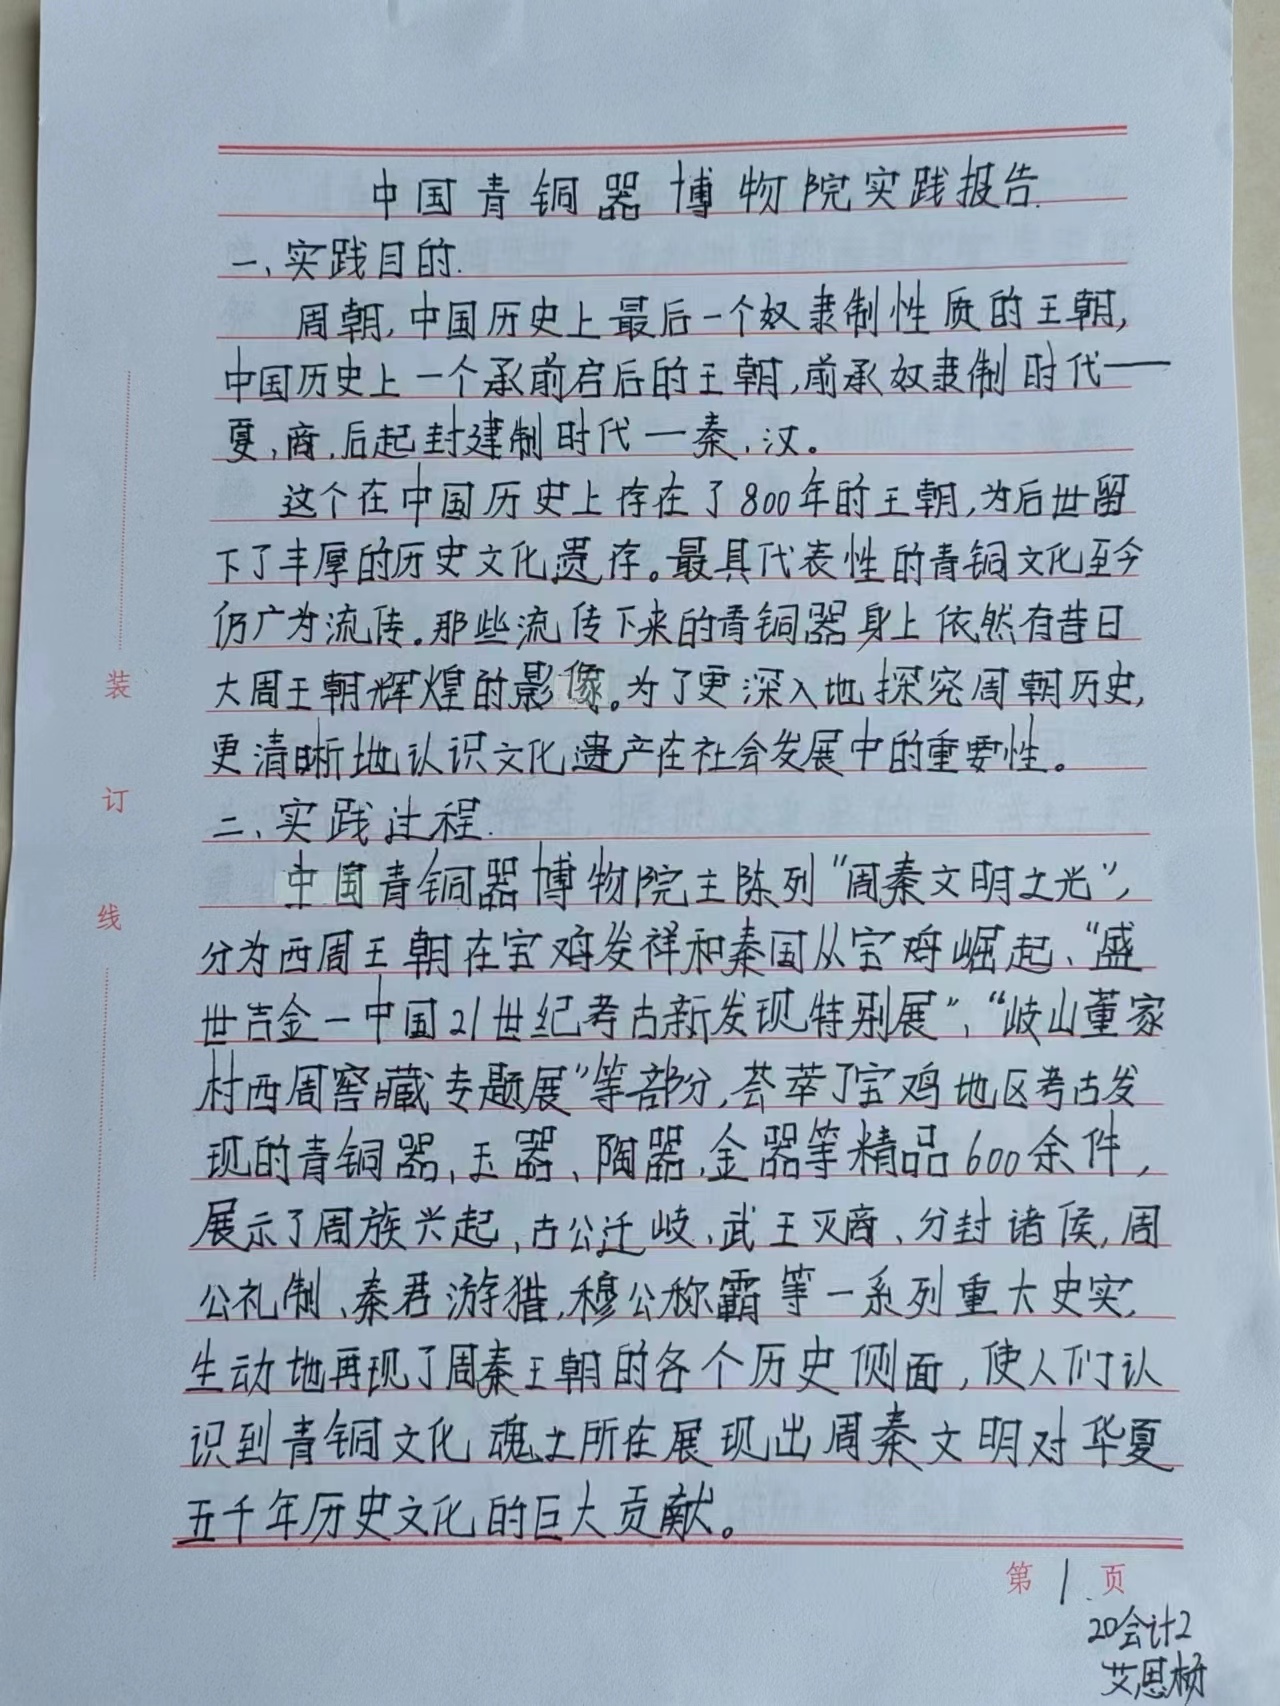 中国青铜器博物院实践报告.
一、实践目的.
周朝,中国历史上最后一个奴隶制性质的王朝,
中国历史上一个承前启后的王朝,前承奴隶制时代——
夏,商,后起封建制时代一秦,汉。
这个在中国历史上存在了800年的王朝,为后世留
下了丰厚的历史文化遗存。最具代表性的青铜文化至今
仍广为流传。那些流传下来的青铜器身上依然有昔日
大周王朝辉煌的影像。为了更深入地探究周朝历史,
更清晰地认识文化遗产在社会发展中的重要性。
二、实践过程.
中国青铜器博物院主陈列“周秦文明之光”,
分为西周王朝在宝鸡发祥和秦国从宝鸡崛起、“盛
世吉金一中国21世纪考古新发现特别展”、“岐山董家
村西周窖藏专题展”等部分,荟萃了宝鸡地区考古发
现的青铜器,玉器、陶器,金器等精品600余件,
展示了周族兴起,古公迁岐、武王灭商、分封诸侯,周
公礼制、秦君游猎,穆公称霸等一系列重大史实,
生动地再现了周秦王朝的各个历史侧面,使人们认
识到青铜文化魂之所在展现出周秦文明对华夏
五千年历史文化的巨大贡献。
装
订
线
第1页
20会计2
艾思杨